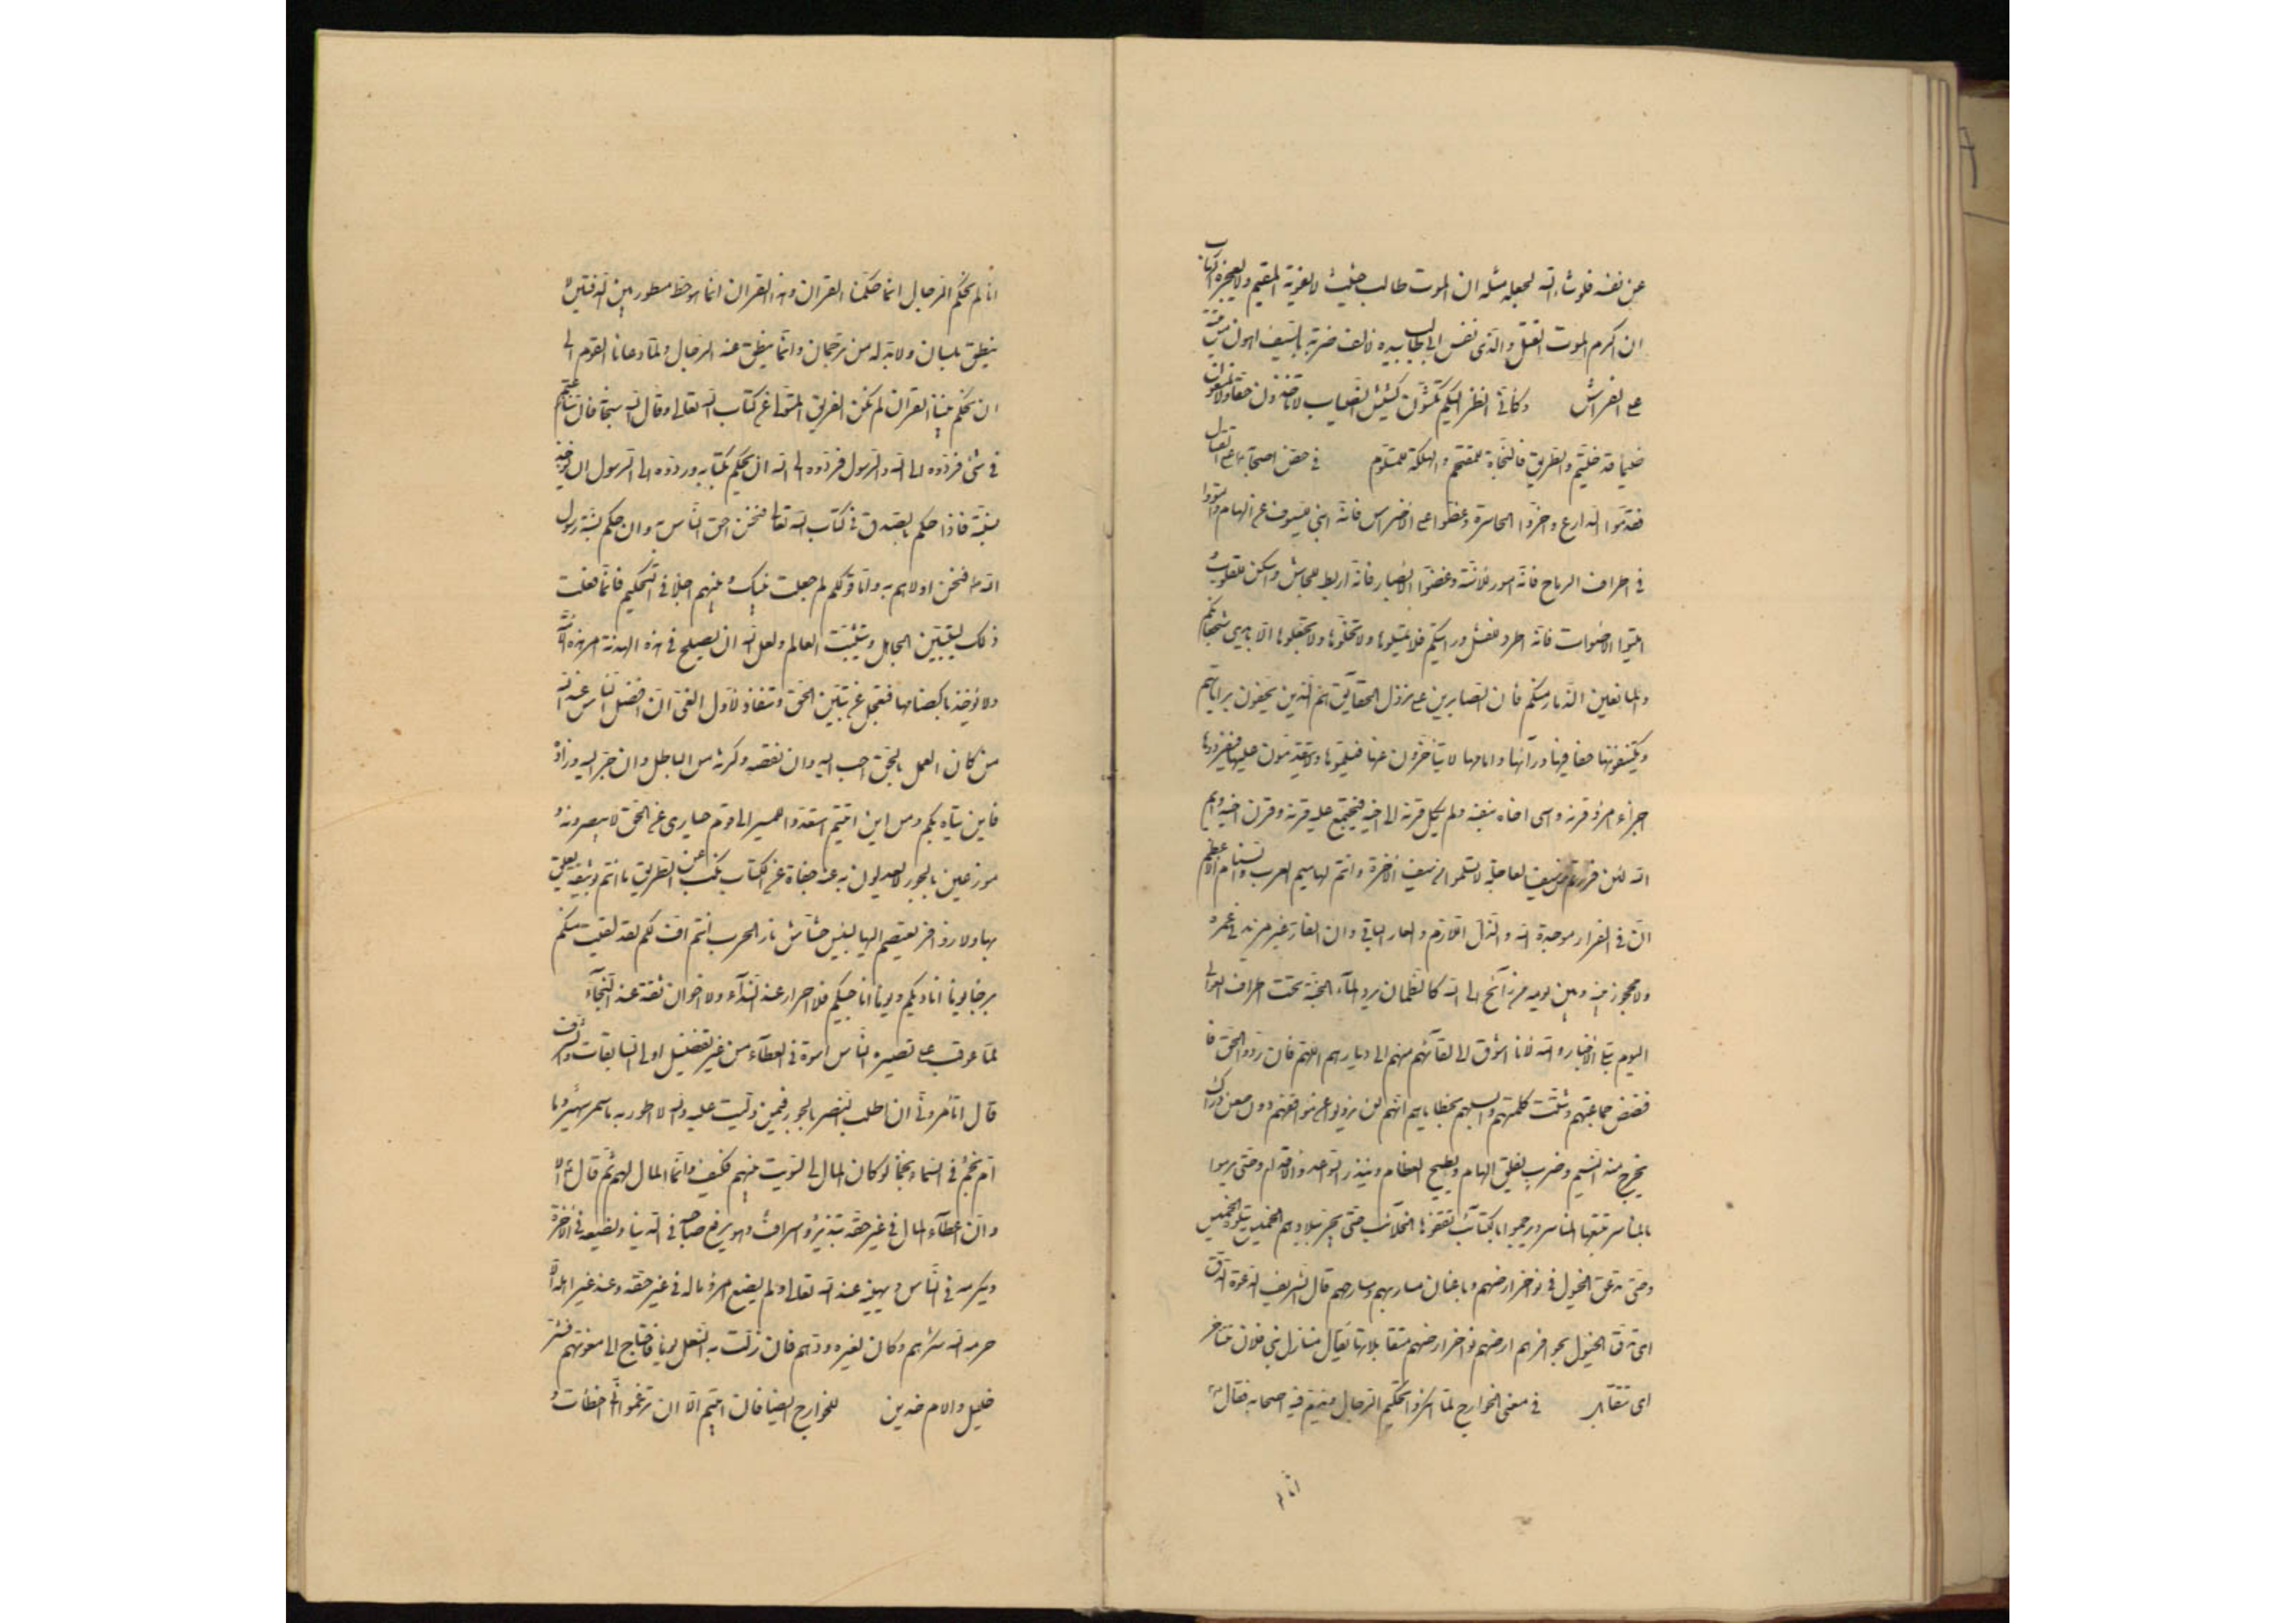 عن نفسه فلو شاء الله لجعله مثله ان الموت طالب حثيث لا يفوته المقيم ولا يعجزه الهارب
ان اكرم الموت القتل والذى نفس ابى طالب بيده لالف ضربة بالسيف اهون من ميتة
على الفراش وكأنى انظر اليكم تكشون كشيش الضباب لا تأخذون حقا ولا تمنعون
ضيما قد خليتم والطريق فالنجاة للمقتحم والهلكة للمتلوم فى حض اصحابه على القتال
فقدموا الدارع واخروا الحاسر وعضوا على الاضراس فانه انبى للسيوف عن الهام والتووا
فى اطراف الرماح فانه امور للاسنة وغضوا الابصار فانه اربط للجاش واسكن للقلوب
اميتوا الاصوات فانه اطرد للفشل ورايتكم فلا تميلوها ولا تخلوها ولا تجعلوها الا بايدى شجعانكم
والمانعين الذمار منكم فان الصابرين على نزول الحقائق هم الذين يحفون براياتهم
ويكتنفونها حفافيها وورآئها وامامها لا يتأخرون عنها فيسلموها ولا يتقدمون عليها فيفردوها
اجزاء امرؤ قرنه واسى اخاه بنفسه ولم يكل قرنه الى اخيه فيجتمع عليه قرنه وقرن اخيه وايم
الله لئن فررتم من سيف العاجلة لا تسلموا من سيف الآخرة وانتم لهاميم العرب والسنام الاعظم
ان فى الفرار موجدة الله والذل اللازم والعار الباقى وان الفار غير مزيد فى عمره
ولا محجوز بينه وبين يومه من رائح الى الله كالظمان يرد المآء الجنة تحت اطراف العوالى
اليوم تبلى الاخبار والله لانا اشوق الى لقآئهم منهم الى ديارهم اللهم فان ردوا الحق فا
فضض جماعتهم وشتت كلمتهم وابسلهم بخطاياهم انهم لن يزولوا عن مواقفهم دون طعن دراك
يخرج منه النسيم وضرب يفلق الهام ويطيح العظام ويندر السواعد والاقدام وحتى يرموا
بالمناسر تتبعها المناسر ويرجموا بالكتائب تقفوها الحلائب حتى يجر ببلادهم الخميس يتلوه الخميس
وحتى تدعق الخيول فى نواخر ارضهم وباعنان مساربهم ومسارحهم قال الشريف الدعق الدق
اى تدق الخيول بحوافرها ارضهم ونواخر ارضهم متقابلاتها يقال منازل بنى فلان تتناحر
اى تتقابل فى معنى الخوارج لما انكروا تحكيم الرجال ويذم فيه اصحابه فقال ع
انا لم
انا لم نحكم الرجال انما حكمنا القران وهذا القران انما هو خط مسطور بين الدفتين لا
ينطق بلسان ولا بد له من ترجمان وانما ينطق عنه الرجال ولما دعانا القوم الى
ان نحكم بيننا القران لم نكن الفريق المتولى عن كتاب الله تعالى وقال الله سبحانه فان تنازعتم
فى شئ فردوه الى الله والرسول فردوه الى الله ان نحكم بكتابه ورده الى الرسول ان نأخذ
بسنته فاذا حكم بالصدق فى كتاب الله تعالى فنحن احق الناس به وان حكم بسنة رسول
الله ص فنحن اولاهم به واما قولكم لم جعلت بينك وبينهم اجلا فى التحكيم فانما فعلت
ذلك ليتبين الجاهل ويتثبت العالم ولعل الله ان يصلح فى هذه الهدنة امر هذه الامة
ولا تؤخذ باكظامها فتعجل عن تبين الحق وتنقاد لاول الغى ان افضل الناس عند الله
من كان العمل بالحق احب اليه وان نقصه وكرثه من الباطل وان جر اليه وزاده
فاين يتاه بكم ومن اين اتيتم استعدوا للمسير الى قوم حيارى عن الحق لا يبصرونه و
موزعين بالجور لا يعدلون به عنه جفاة عن الكتاب نكب عن الطريق ما انتم بوثيقة يعلق
بها ولا زوافر يعتصم اليها لبئس حشاش نار الحرب انتم اف لكم لقد لقيت منكم
برحا يوما اناديكم ويوما اناجيكم فلا احرار عند الندآء ولا اخوان ثقة عند النجآء
لما عوتب على تصييره الناس اسوة فى العطآء من غير تفضيل اولى السابقات والشرف
قال اتأمرونى ان اطلب النصر بالجور فيمن وليت عليه والله لا اطور به ما سمر سمير وما
ام نجم فى السماء نجما لو كان المال لى لسويت بينهم فكيف وانما المال لهم ثم قال ع الا
وان اعطآء المال فى غير حقه تبذير واسراف وهو يرفع صاحبه فى الدنيا ويضيعه فى الآخرة
ويكرمه فى الناس ويهينه عند الله تعالى ولم يضع امرؤ ماله فى غير حقه وعند غير اهله الا
حرمه الله شكرهم وكان لغيره ودهم فان زلت به النعل يوما فاحتاج الى معونتهم فشر
خليل والام خدين للخوارج ايضا فان ابيتم الا ان تزعموا انى اخطأت و